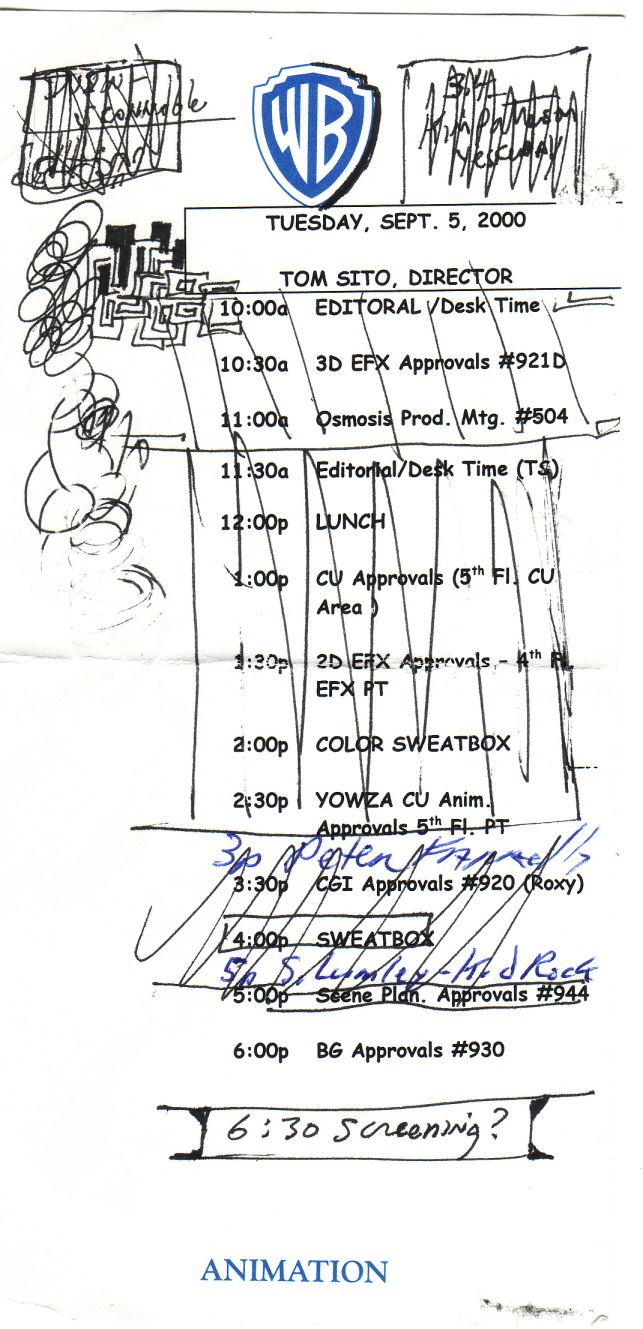 WB
TUESDAY, SEPT. 5, 2000
TOM SITO, DIRECTOR
10:00a EDITORAL /Desk Time
10:30a 3D EFX Approvals #921D
11:00a Osmosis Prod. Mtg. #504
11:30a Editorial/Desk Time (TS)
12:00p LUNCH
1:00p CU Approvals (5th Fl. CU
Area )
1:30p 2D EFX Approvals - 4th Fl.
EFX PT
2:00p COLOR SWEATBOX
2:30p YOWZA CU Anim.
Approvals 5th Fl. PT
3p Peter
3:30p CGI Approvals #920 (Roxy)
4:00p SWEATBOX
5p S. Lumley - Kid Rock
5:00p Scene Plan. Approvals #944
6:00p BG Approvals #930
6:30 Screening?
ANIMATION